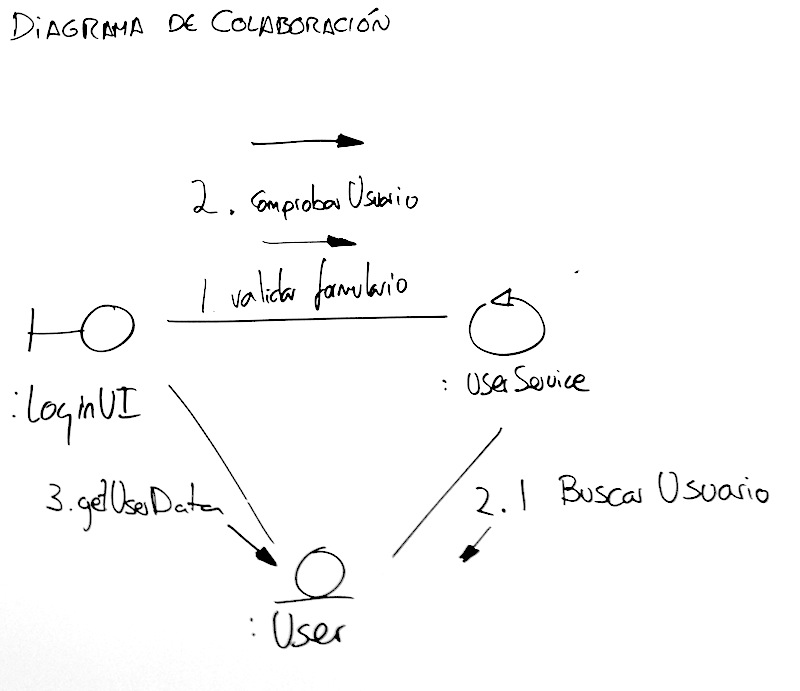 DIAGRAMA DE COLABORACIÓN
2. Comprobar Usuario
1. validar formulario
: UserService
:LoginUI
3. getUserData
2.1 Buscar Usuario
: User